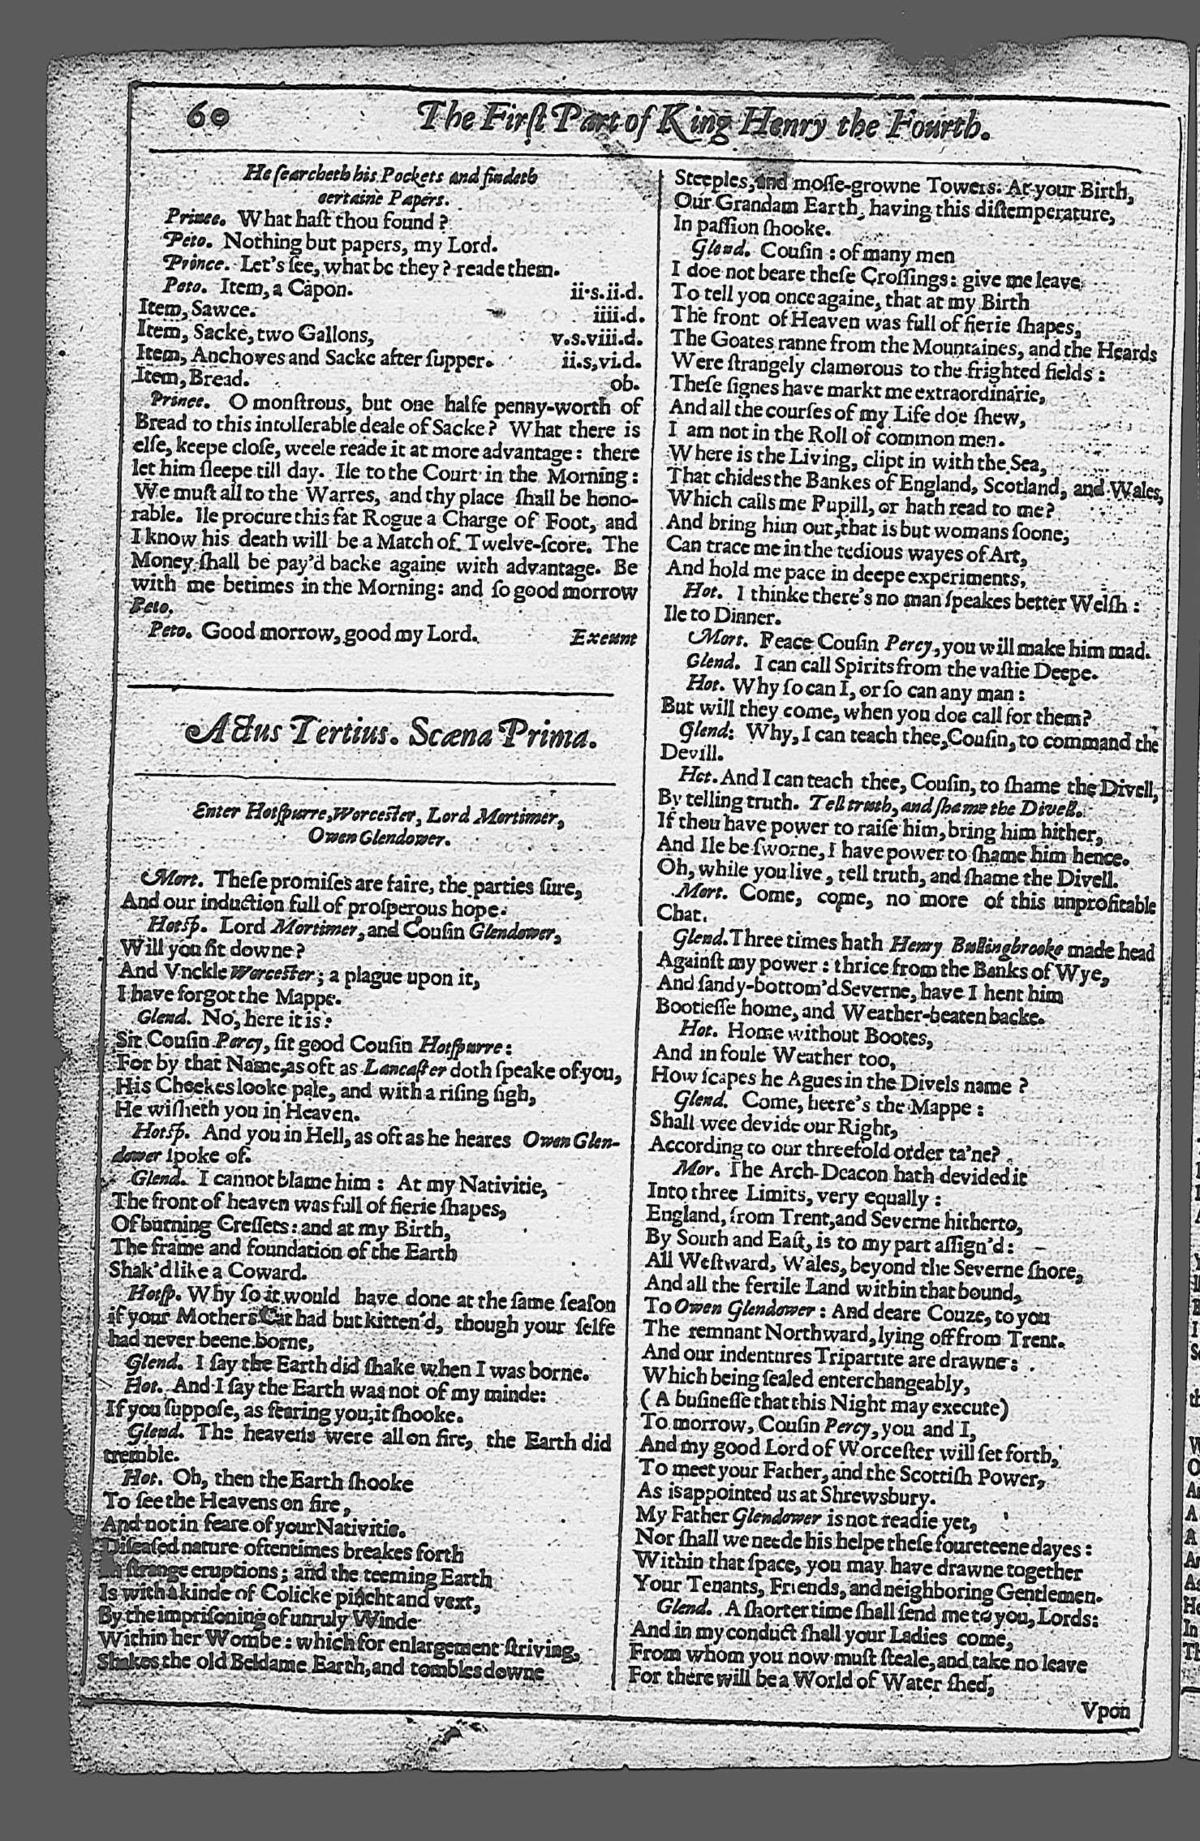 60
The Firſt Part of King Henry the Fourth.
He ſearcheth his Pockets and findeth
certaine Papers.
Prince. What haſt thou found?
Peto. Nothing but papers, my Lord.
Prince. Let's ſee, what be they? reade them.
Peto. Item, a Capon. ii.s.ii.d.
Item, Sawce. iiii.d.
Item, Sacke, two Gallons, v.s.viii.d.
Item, Anchoves and Sacke after ſupper. ii.s,vi.d.
Item, Bread. ob.
Prince. O monſtrous, but one halfe penny-worth of
Bread to this intollerable deale of Sacke? What there is
elſe, keepe cloſe, weele reade it at more advantage: there
let him ſleepe till day. Ile to the Court in the Morning:
We muſt all to the Warres, and thy place ſhall be hono-
rable. Ile procure this fat Rogue a Charge of Foot, and
I know his death will be a Match of Twelve-ſcore. The
Money ſhall be pay'd backe againe with advantage. Be
with me betimes in the Morning: and ſo good morrow
Peto.
Peto. Good morrow, good my Lord. Exeunt
Actus Tertius. Scæna Prima.
Enter Hotſpurre, Worceſter, Lord Mortimer,
Owen Glendower.
Mort. Theſe promiſes are faire, the parties ſure,
And our induction full of proſperous hope.
Hotſp. Lord Mortimer, and Couſin Glendower,
Will you ſit downe?
And Vnckle Worceſter; a plague upon it,
I have forgot the Mappe.
Glend. No, here it is:
Sit Couſin Percy, ſit good Couſin Hotſpurre:
For by that Name, as oft as Lancaſter doth ſpeake of you,
His Cheekes looke pale, and with a riſing ſigh,
He wiſheth you in Heaven.
Hotſp. And you in Hell, as oft as he heares Owen Glen-
dower ſpoke of.
Glend. I cannot blame him: At my Nativitie,
The front of heaven was full of fierie ſhapes,
Of burning Creſſets: and at my Birth,
The frame and foundation of the Earth
Shak'd like a Coward.
Hotſp. Why ſo it would have done at the ſame ſeaſon
if your Mothers Cat had but kitten'd, though your ſelfe
had never beene borne,
Glend. I ſay the Earth did ſhake when I was borne.
Hot. And I ſay the Earth was not of my minde:
If you ſuppoſe, as fearing you, it ſhooke.
Glend. The heavens were all on fire, the Earth did
tremble.
Hot. Oh, then the Earth ſhooke
To ſee the Heavens on fire,
And not in feare of your Nativitie.
Diſeaſed nature oftentimes breakes forth
In ſtrange eruptions; and the teeming Earth
Is with a kinde of Colicke pincht and vext,
By the impriſoning of unruly Winde
Within her Wombe: which for enlargement ſtriving,
Shakes the old Beldame Earth, and tombles downe
Steeples, and moſſe-growne Towers: At your Birth,
Our Grandam Earth, having this diſtemperature,
In paſſion ſhooke.
Glend. Couſin: of many men
I doe not beare theſe Croſſings: give me leave
To tell you once againe, that at my Birth
The front of Heaven was full of fierie ſhapes,
The Goates ranne from the Mountaines, and the Heards
Were ſtrangely clamorous to the frighted fields:
Theſe ſignes have markt me extraordinarie,
And all the courſes of my Life doe ſhew,
I am not in the Roll of common men.
Where is the Living, clipt in with the Sea,
That chides the Bankes of England, Scotland, and Wales,
Which calls me Pupill, or hath read to me?
And bring him out, that is but womans ſonne,
Can trace me in the tedious wayes of Art,
And hold me pace in deepe experiments,
Hot. I thinke there's no man ſpeakes better Welſh:
Ile to Dinner.
Mort. Peace Couſin Percy, you will make him mad.
Glend. I can call Spirits from the vaſtie Deepe.
Hot. Why ſo can I, or ſo can any man:
But will they come, when you doe call for them?
Glend: Why, I can teach thee, Couſin, to command the
Devill.
Hot. And I can teach thee, Couſin, to ſhame the Divell,
By telling truth. Tell truth, and ſhame the Divell.
If thou have power to raiſe him, bring him hither,
And Ile be ſworne, I have power to ſhame him hence.
Oh, while you live, tell truth, and ſhame the Divell.
Mort. Come, come, no more of this unprofitable
Chat.
Glend. Three times hath Henry Bullingbrooke made head
Againſt my power: thrice from the Banks of Wye,
And ſandy-bottom'd Severne, have I hent him
Bootleſſe home, and Weather-beaten backe.
Hot. Home without Bootes,
And in foule Weather too,
How ſcapes he Agues in the Divels name?
Glend. Come, heere's the Mappe:
Shall wee devide our Right,
According to our threefold order ta'ne?
Mor. The Arch-Deacon hath devided it
Into three Limits, very equally:
England, from Trent, and Severne hitherto,
By South and Eaſt, is to my part aſſign'd:
All Weſtward, Wales, beyond the Severne ſhore,
And all the fertile Land within that bound,
To Owen Glendower: And deare Couze, to you
The remnant Northward, lying off from Trent.
And our indentures Tripartite are drawne:
Which being ſealed enterchangeably,
(A buſineſſe that this Night may execute)
To morrow, Couſin Percy, you and I,
And my good Lord of Worceſter will ſet forth,
To meet your Father, and the Scottiſh Power,
As is appointed us at Shrewsbury.
My Father Glendower is not readie yet,
Nor ſhall we neede his helpe theſe foureteene dayes:
Within that ſpace, you may have drawne together
Your Tenants, Friends, and neighboring Gentlemen.
Glend. A ſhorter time ſhall ſend me to you, Lords:
And in my conduct ſhall your Ladies come,
From whom you now muſt ſteale, and take no leave
For there will be a World of Water ſhed,
Vpon